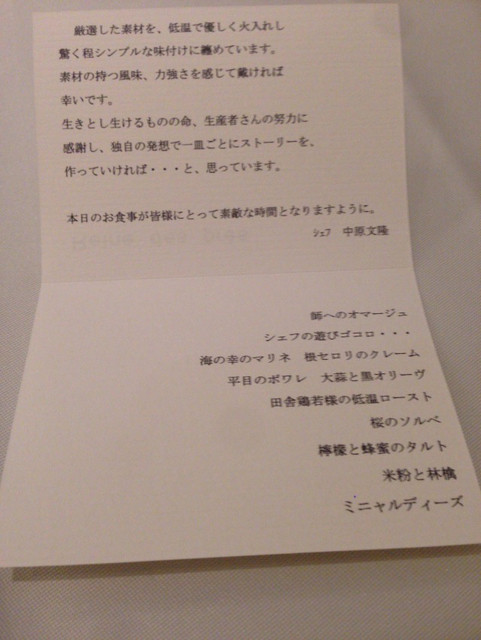 厳選した素材を、低温で優しく火入れし
驚く程シンプルな味付けに纏めています。
素材の持つ風味、力強さを感じて戴ければ
幸いです。
生きとし生けるものの命、生産者さんの努力に
感謝し、独自の発想で一皿ごとにストーリーを、
作っていければ・・・と、思っています。
本日のお食事が皆様にとって素敵な時間となりますように。
ｼｪﾌ 中原文隆
師へのオマージュ
シェフの遊びゴコロ・・・
海の幸のマリネ 根セロリのクレーム
平目のポワレ 大蒜と黒オリーヴ
田舎鶏若様の低温ロースト
桜のソルベ
檸檬と蜂蜜のタルト
米粉と林檎
ミニャルディーズ